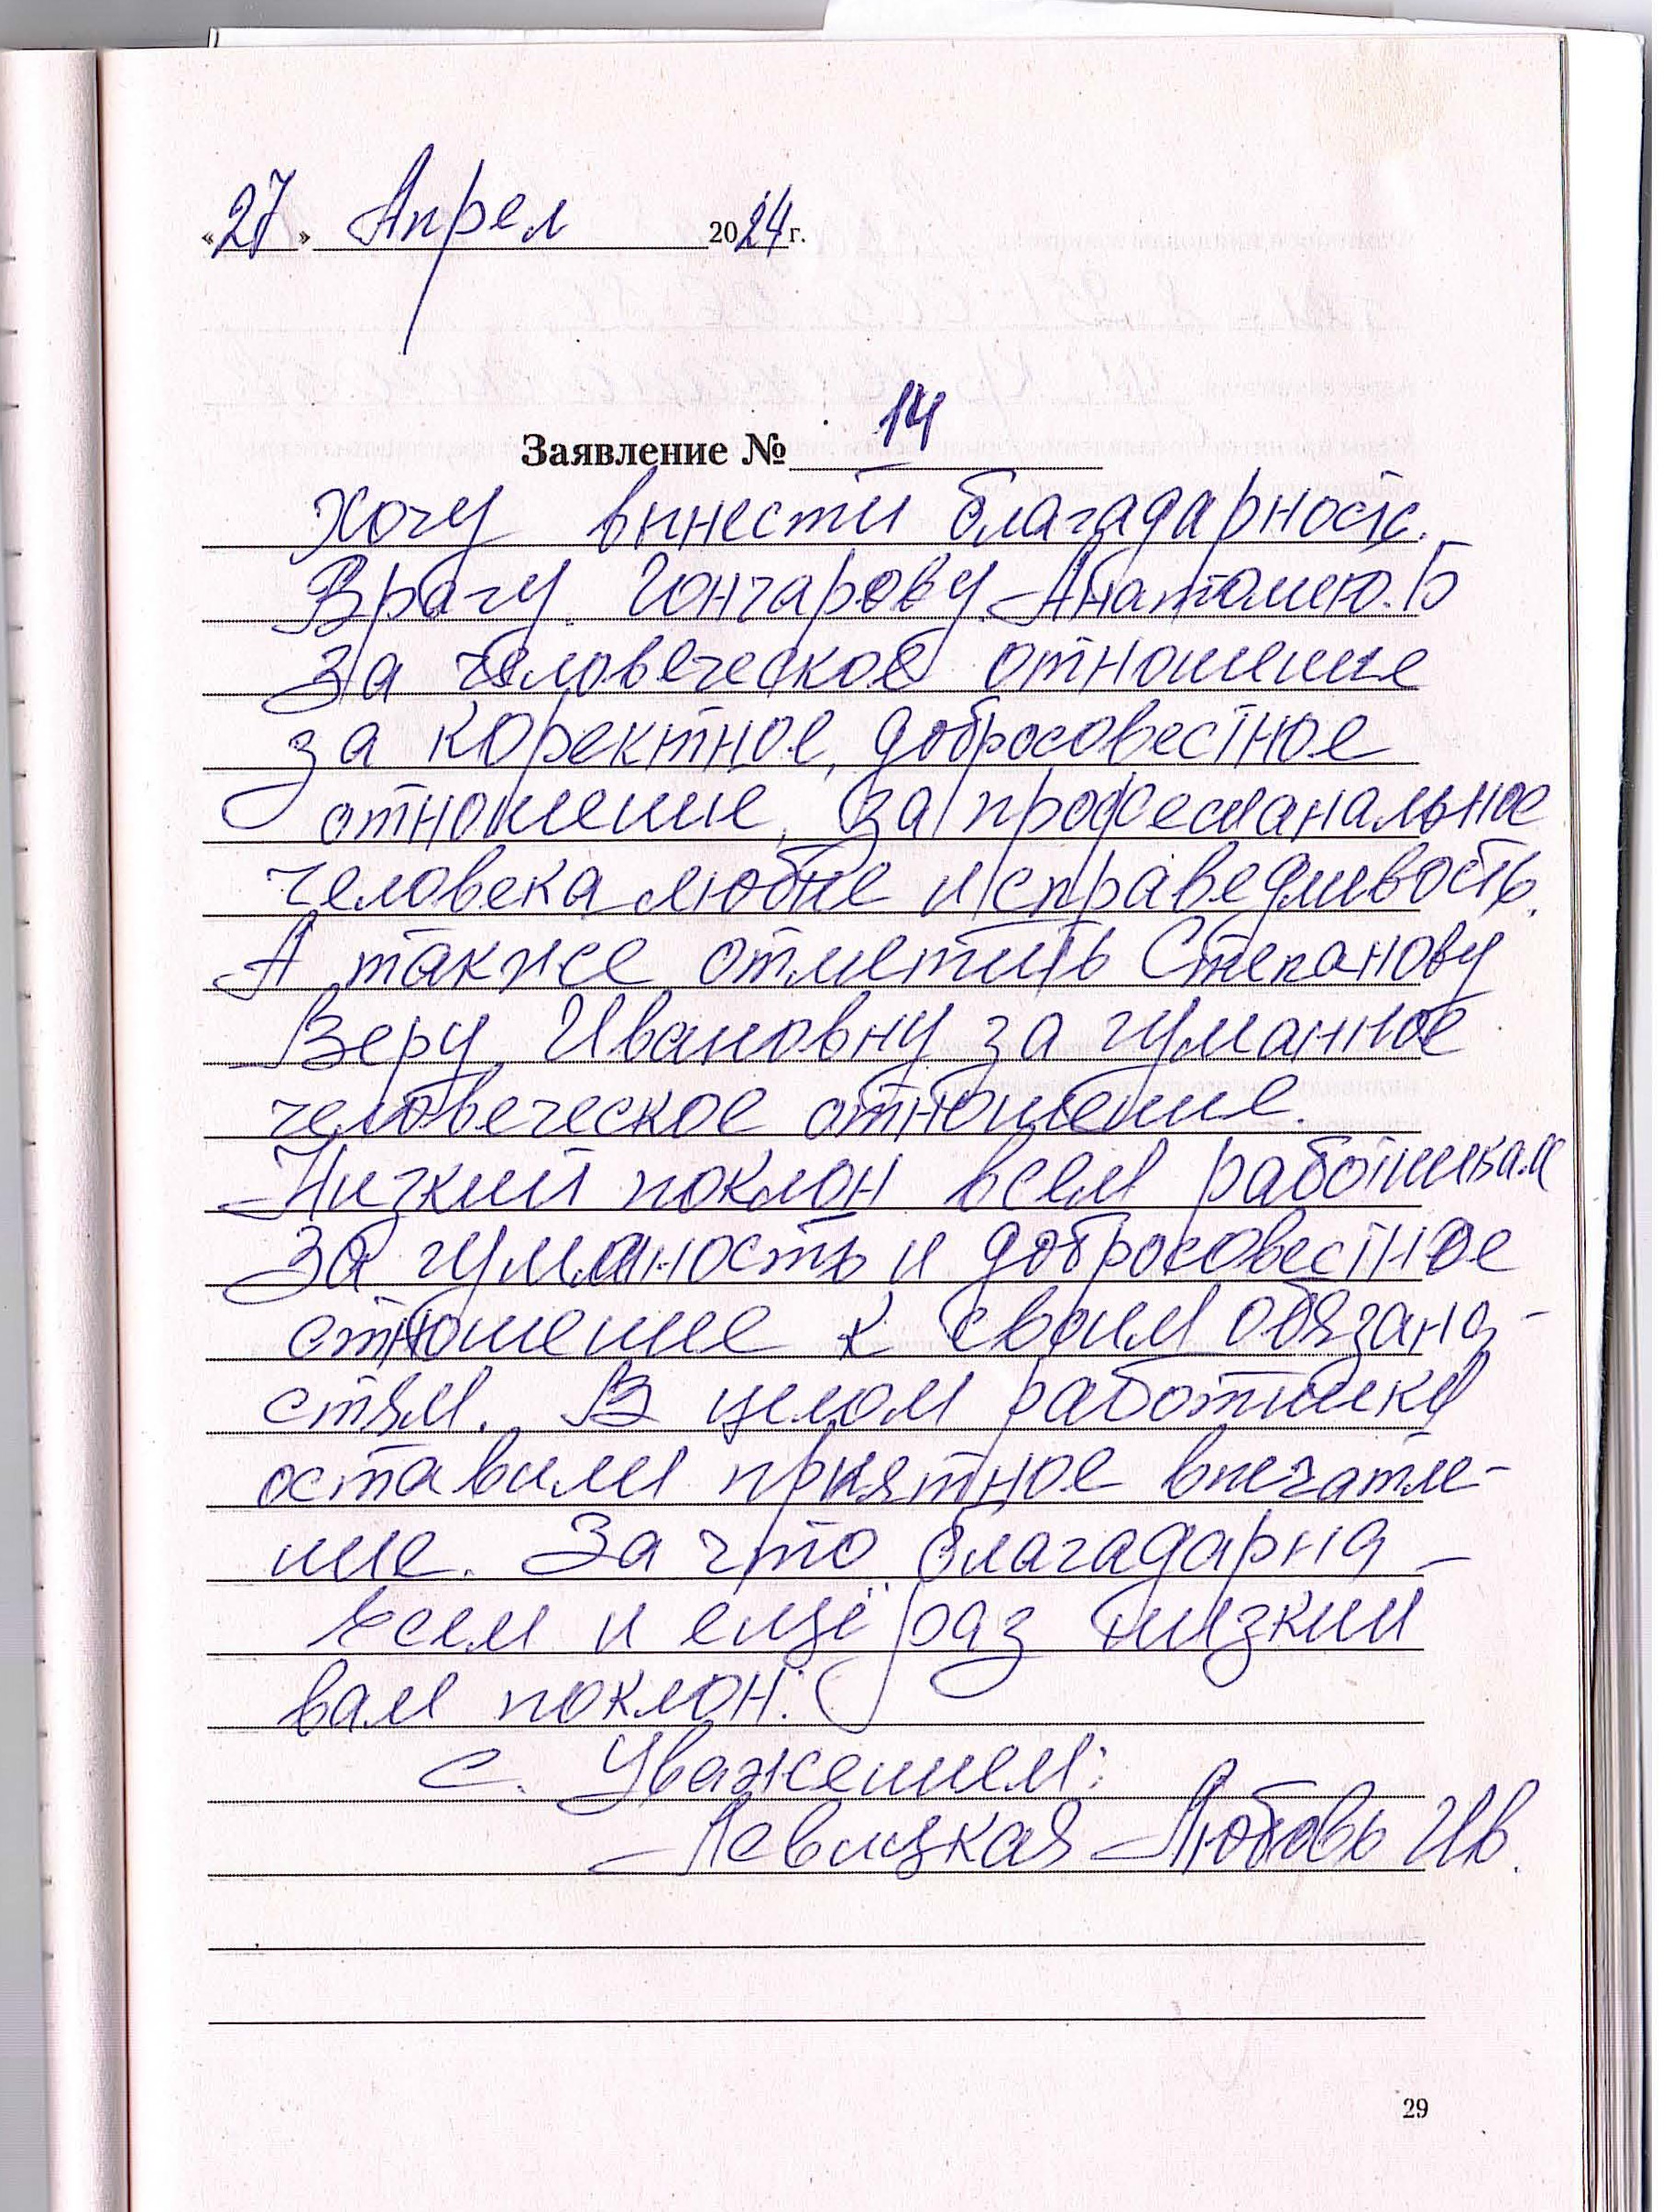 «27» Апрел 2024 г.
Заявление № 14
Хочу вынести благадарность.
Врачу Гончарову Анатолию. Б
За человеческое отношение
за коректное, добросовестное
отношение, за професианальное
человека любие и справедливость.
А также отметить Степанову
Веру Ивановну за гуманное
человеческое отношение.
Низкий поклон всем работникам
За гуманость и добросовестное
отношение к своим обязано-
стям. В целом работники
оставили приятное впечатле-
ние. За что благадарна
всем и ещё раз низкий
вам поклон.
с. Уважением:
Левицкая Любовь Ив.
29